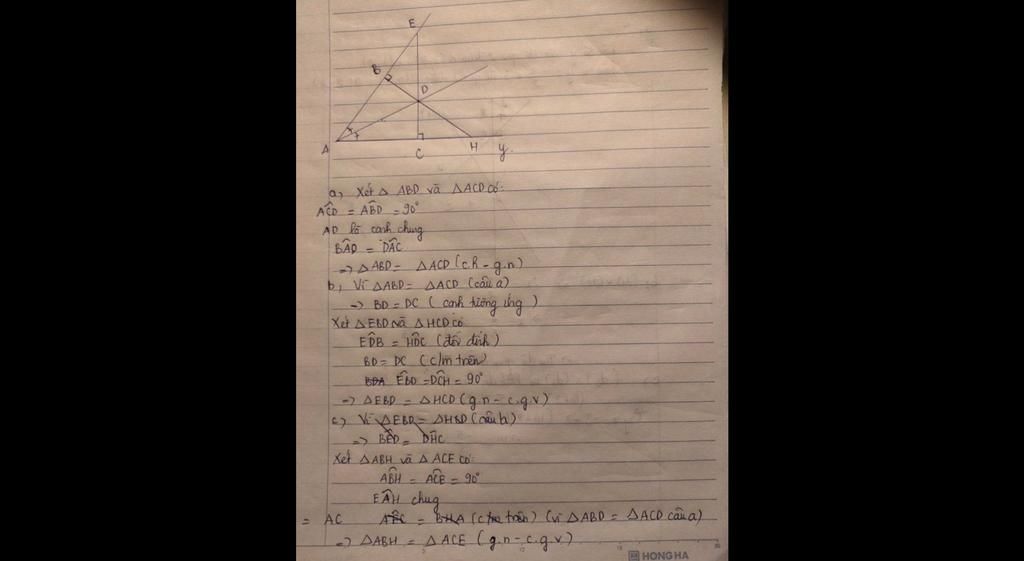 E
B
D
A
C
H
y
a, Xét △ ABD và △ACD có:
ACD = ABD = 90°
AD là cạnh chung
BAD = DAC
=> △ABD = △ACD (c.h - g.n)
b, Vì △ABD = △ACD (câu a)
=> BD = DC (cạnh tương ứng)
Xét △EBD và △HCD có
EDB = HDC (đối đỉnh)
BD = DC (c/m trên)
EBD = DCH = 90°
=> △EBD = △HCD (g.n - c.g.v)
c, Vì △EBD = (câu b)
=> BED = DHC
Xét △ABH và △ACE có:
ABH = ACE = 90°
EAH chug
= AC (vì △ABD = △ACD câu a)
=> △ABH = △ACE (g.n - c.g.v)
HONG HA